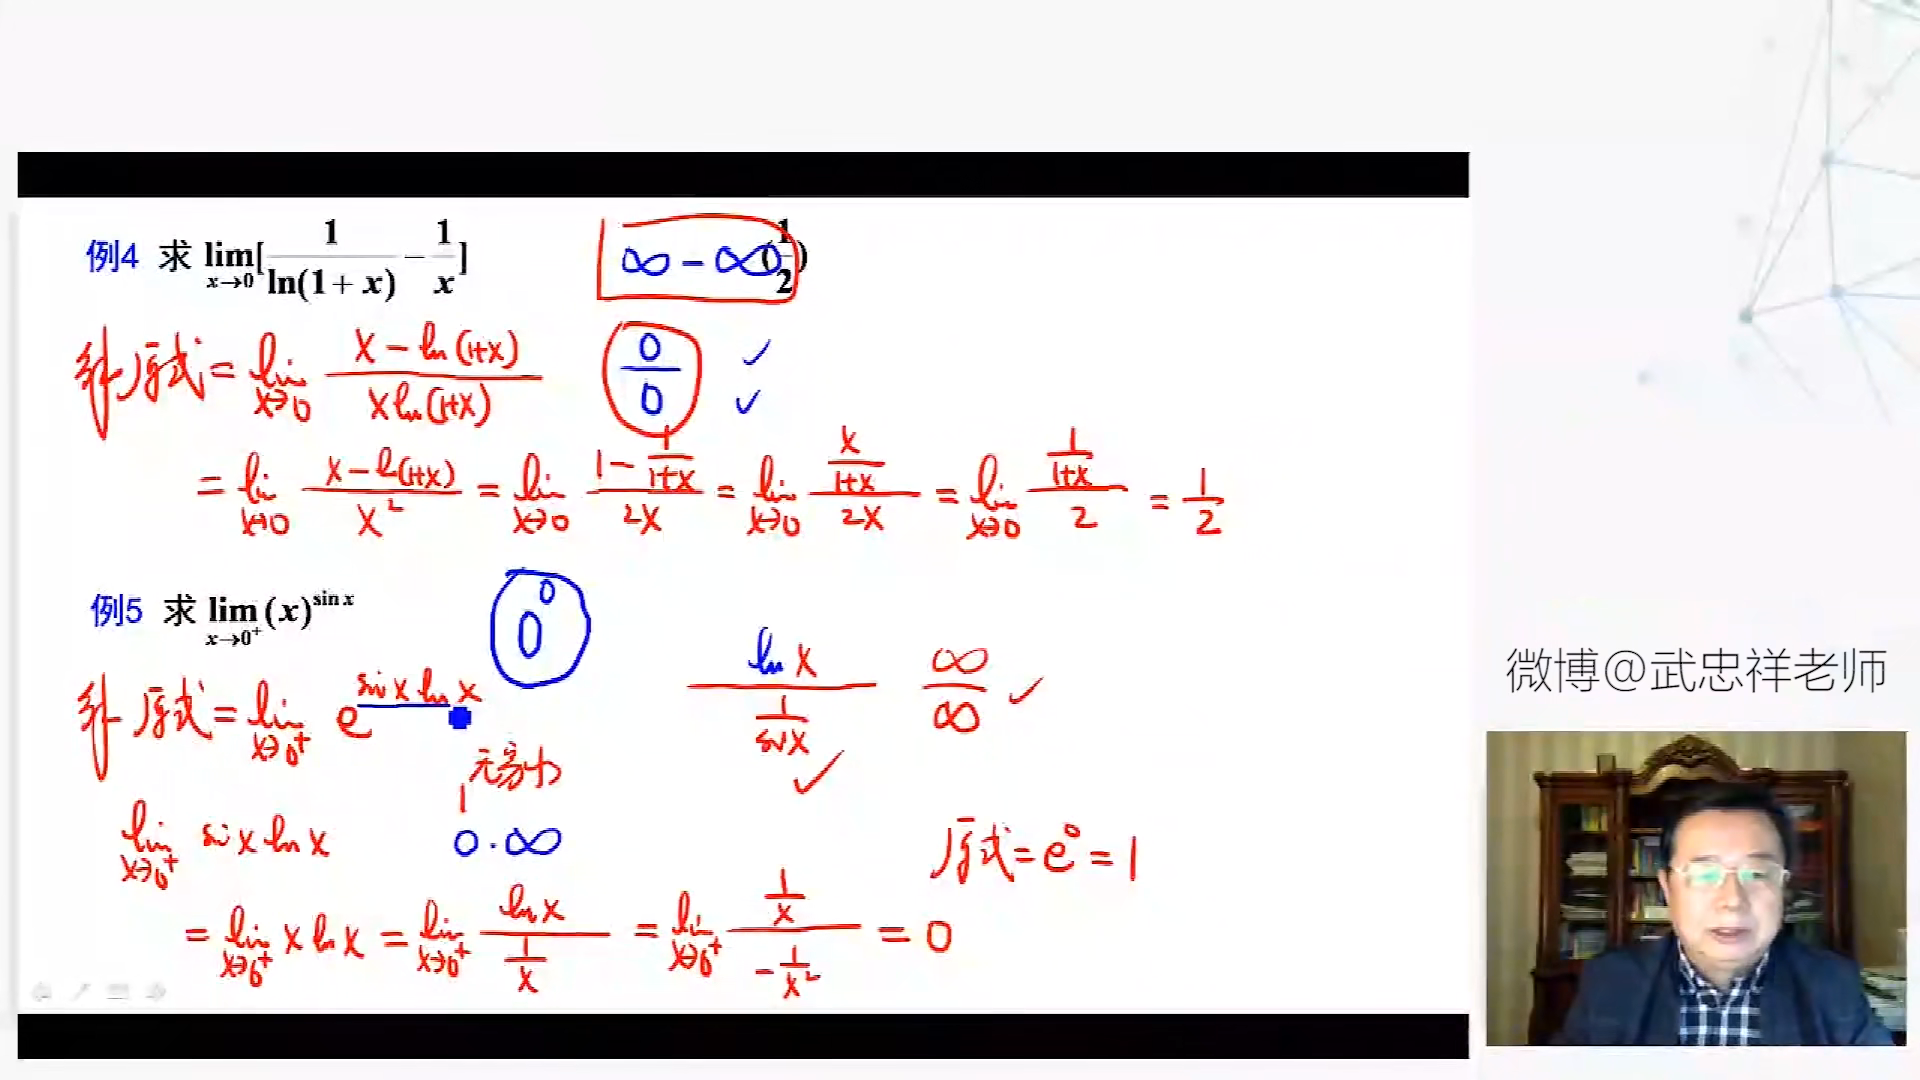 例4 求 lim_{x→0}[1/ln(1+x) − 1/x] ∞−∞ (1/2)
解 原式 = lim_{x→0} (x−ln(1+x))/(x ln(1+x)) 0/0 ✓ ✓
= lim_{x→0} (x−ln(1+x))/x² = lim_{x→0} (1−1/(1+x))/(2x) = lim_{x→0} (x/(1+x))/(2x) = lim_{x→0} (1/(1+x))/2 = 1/2
例5 求 lim_{x→0⁺}(x)^{sin x} 0⁰
解 原式 = lim_{x→0⁺} e^{sin x ln x} ln x/(1/sin x) ∞/∞ ✓
无穷小 ✓
lim_{x→0⁺} sin x ln x 0·∞ 原式 = e⁰ = 1
= lim_{x→0⁺} x ln x = lim_{x→0⁺} ln x/(1/x) = lim_{x→0⁺} (1/x)/(−1/x²) = 0
微博@武忠祥老师